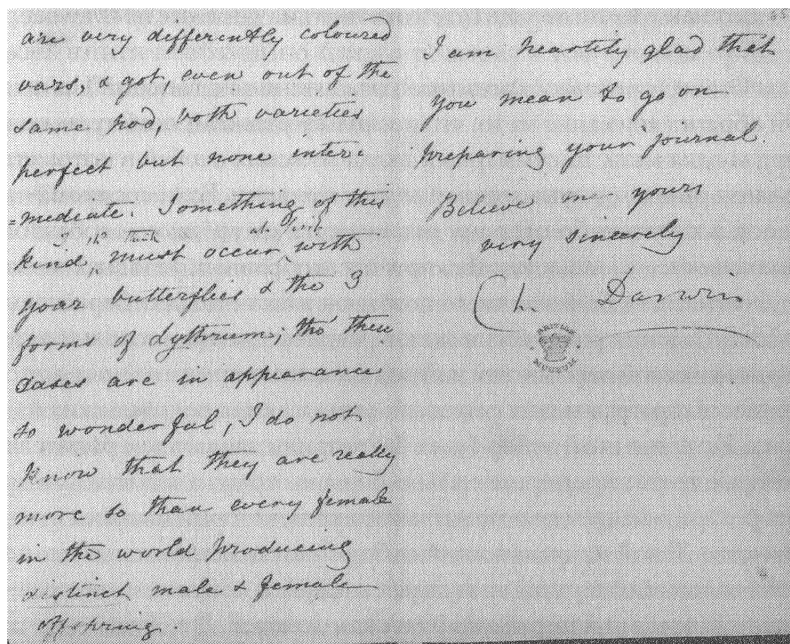 are very differently coloured
vars, & got, even out of the
same pod both varieties
perfect but none inter:
=mediate. Something of this
kind, I think, must occur at first with
your butterflies & the 3
forms of Lythrum; tho' these
cases are in appearance
so wonderful, I do not
know that they are really
more so than every female
in the world producing
distinct male & female
offspring.
65
I am heartily glad that
you mean to go on
preparing your journal.
Believe me yours
very sincerely
Ch Darwin